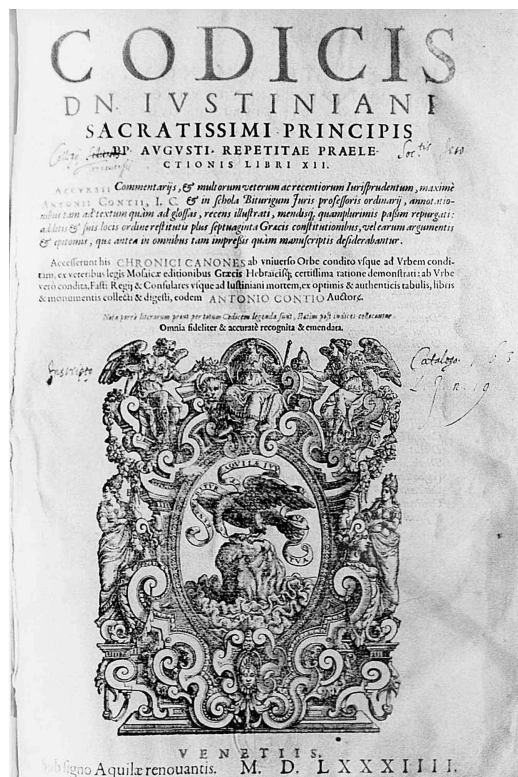 CODICIS
DN. IVSTINIANI
SACRATISSIMI PRINCIPIS
PP. AVGVSTI. REPETITAE PRAELE-
CTIONIS LIBRI XII.
ACCVRSII Commentarijs, & multorum veterum ac recentiorum Iurisprudentum, maximè
ANTONII CONTII, I. C. & in schola Biturigum Juris professoris ordinarij, annotatio-
nibus tam ad textum quàm ad glossas, recens illustrati, mendisq, quamplurimis passim repurgati:
additis & suis locis ordine restitutis plus septuaginta Græcis constitutionibus, vel earum argumentis
& epitomis, quæ antea in omnibus tam impressis quàm manuscriptis desiderabantur.
Accesserunt his CHRONICI CANONES ab vniuerso Orbe condito vsque ad Vrbem condi-
tam, ex veteribus legis Mosaicæ editionibus Græcis Hebraicisq; certissima ratione demonstrati: ab Vrbe
verò condita, Fasti Regij & Consulares vsque ad Iustiniani mortem, ex optimis & authenticis tabulis, libris
& monumentis collecti & digesti, eodem ANTONIO CONTIO Auctore.
Nota porrò literarum prout per totum Codicem legenda sunt, statim post indices collocantur.
Omnia fideliter & accuratè recognita & emendata.
Collegij
Soc.tis Jesu
Inscripto
Catalogo
AQVILÆ
VENETIIS.
Sub signo Aquilæ renouantis. M. D. LXXXIIII.